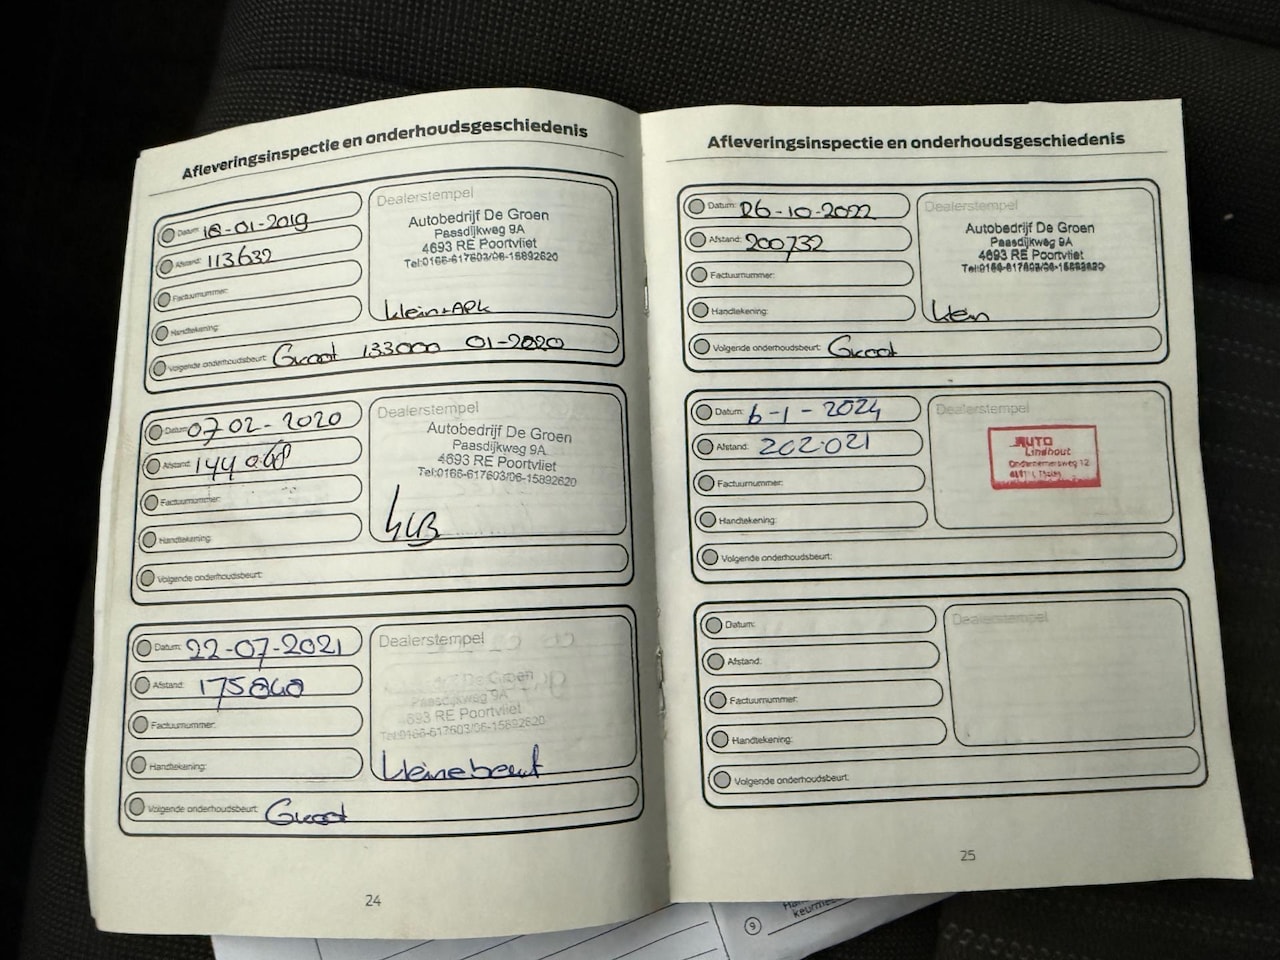 Afleveringsinspectie en onderhoudsgeschiedenis
Datum: 18-01-2019
Afstand: 113632
Factuurnummer:
Handtekening:
Volgende onderhoudsbeurt: Groot 133000 01-2020
Dealerstempel
Autobedrijf De Groen
Paasdijkweg 9A
4693 RE Poortvliet
Tel:0166-617603/06-15892620
klein+APK
Datum: 07 02 - 2020
Afstand: 144 068
Factuurnummer:
Handtekening:
Volgende onderhoudsbeurt:
Dealerstempel
Autobedrijf De Groen
Paasdijkweg 9A
4693 RE Poortvliet
Tel:0166-617603/06-15892620
Datum: 22-07-2021
Afstand: 175840
Factuurnummer:
Handtekening:
Volgende onderhoudsbeurt: Groot
Dealerstempel
De Groen
Paasdijkweg 9A
4693 RE Poortvliet
Tel:0166-617603/06-15892620
kleine beurt
24
Afleveringsinspectie en onderhoudsgeschiedenis
Datum: 26-10-2022
Afstand: 200732
Factuurnummer:
Handtekening:
Volgende onderhoudsbeurt: Groot
Dealerstempel
Autobedrijf De Groen
Paasdijkweg 9A
4693 RE Poortvliet
Tel:0166-617603/06-15892620
klein
Datum: 6-1-2024
Afstand: 202.021
Factuurnummer:
Handtekening:
Volgende onderhoudsbeurt:
Dealerstempel
AUTO
Lindhout
Ondernemersweg 12
Datum:
Afstand:
Factuurnummer:
Handtekening:
Volgende onderhoudsbeurt:
Dealerstempel
25
9